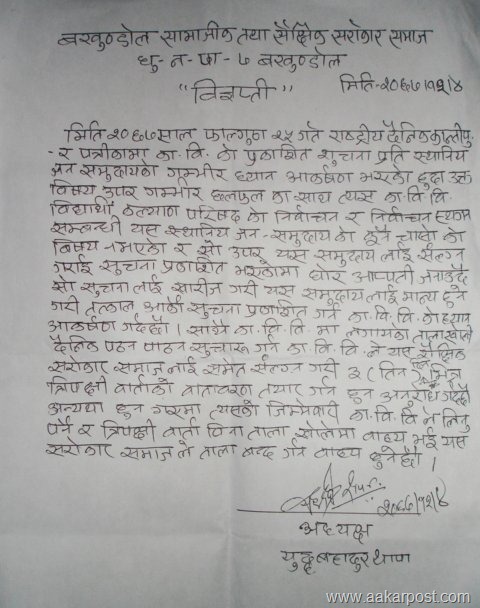 बरखुण्डोल सामाजीक तथा सैक्षिक सरोकार समाज
धु-न-पा-७ बरखुण्डोल
मिति-२०६७।१२।४
"विज्ञप्ती"
मिति २०६७ साल फाल्गुण २५ गते राष्ट्रीय दैनिक कान्तीपु-
र पत्रीकामा का. वि. को प्रकाशित सुचना प्रति स्थानिय
जन समुदायको गम्भीर ध्यान आकर्षण भएको हुदा उक्त
विषय उपर गम्भीर छलफल का साथ त्यस का. वि. वि.
विद्यार्थी कल्याण परिषद को निर्वाचन र निर्वाचन स्थान
सम्बन्धी यस स्थानिय जन-समुदायको कुनै चासो को
बिषय नभएको र सो उपर यस समुदाय लाई संलग्न
गराई सुचना प्रकाशित भएकोमा घोर आपत्ती जनाउदै
सो सुचना लाई खारीज गरी यस समुदायलाई मान्य हुने
गरी तत्काल अर्को सुचना प्रकाशित गर्न का. वि. वि. को ध्यान
आकर्षण गर्दछौ। साथै का. वि. वि. मा लगाएको ताला खोली
दैनिक पठन पाठन सुचारू गर्न का. वि. वि. ले यस सैक्षिक
सरोकार समाज लाई समेत संलग्न गरी ३(तिन) दिन भित्र
त्रिपक्षी वार्ताको वातावरण तयार गर्न हुन अनुरोध गर्दछौ
अन्यथा हुन गएमा त्यसको जिम्मेवारी का. वि. वि. ले लिनु
पर्ने र त्रिपक्षी वार्ता विना ताला खोलेमा वाध्य भई यस
सरोकार समाज ले ताला बन्द गर्न वाध्य हुनेछौ।
२०६७/१२/४
अध्यक्ष
युद्धबहादुर थापा
www.aakarpost.com